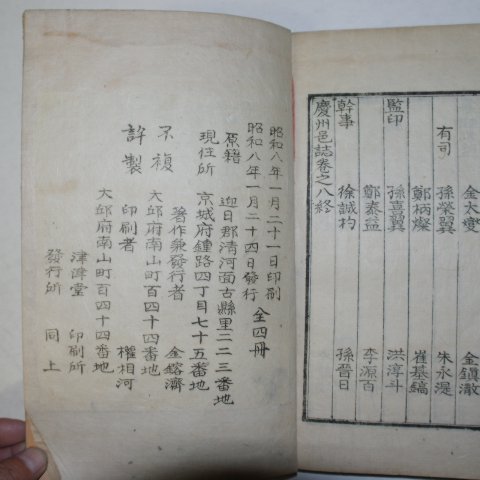 金太燮 金鎭澈
有司 孫榮翼 朱永湜
鄭柄燦 崔基鎬
監印 孫喜翼 洪淳斗
鄭泰益 李源百
幹事 徐誠杓 孫晉日
慶州邑誌卷之八終
昭和八年一月二十一日印刷
昭和八年一月二十四日發行 全四冊
原籍 迎日郡清河面古縣里二二三番地
現住所 京城府鍾路四丁目七十五番地
著作兼發行者 金鎔濟
不複 大邱府南山町百四十四番地
許製 印刷者 權相河
大邱府南山町百四十四番地
津津堂 印刷所
發行所 同上